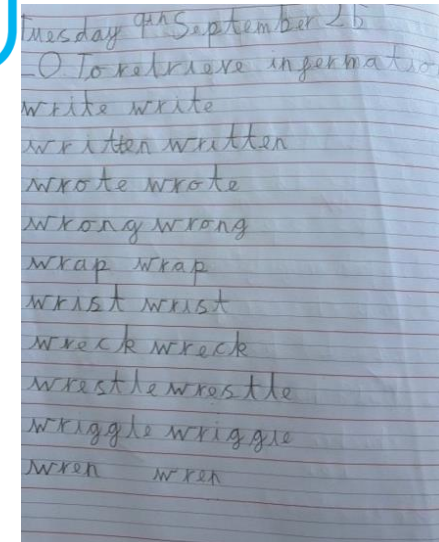 Tuesday 9th September 25
LO. To retrieve information
write write
written written
wrote wrote
wrong wrong
wrap wrap
wrist wrist
wreck wreck
wrestle wrestle
wriggle wriggle
wren wren